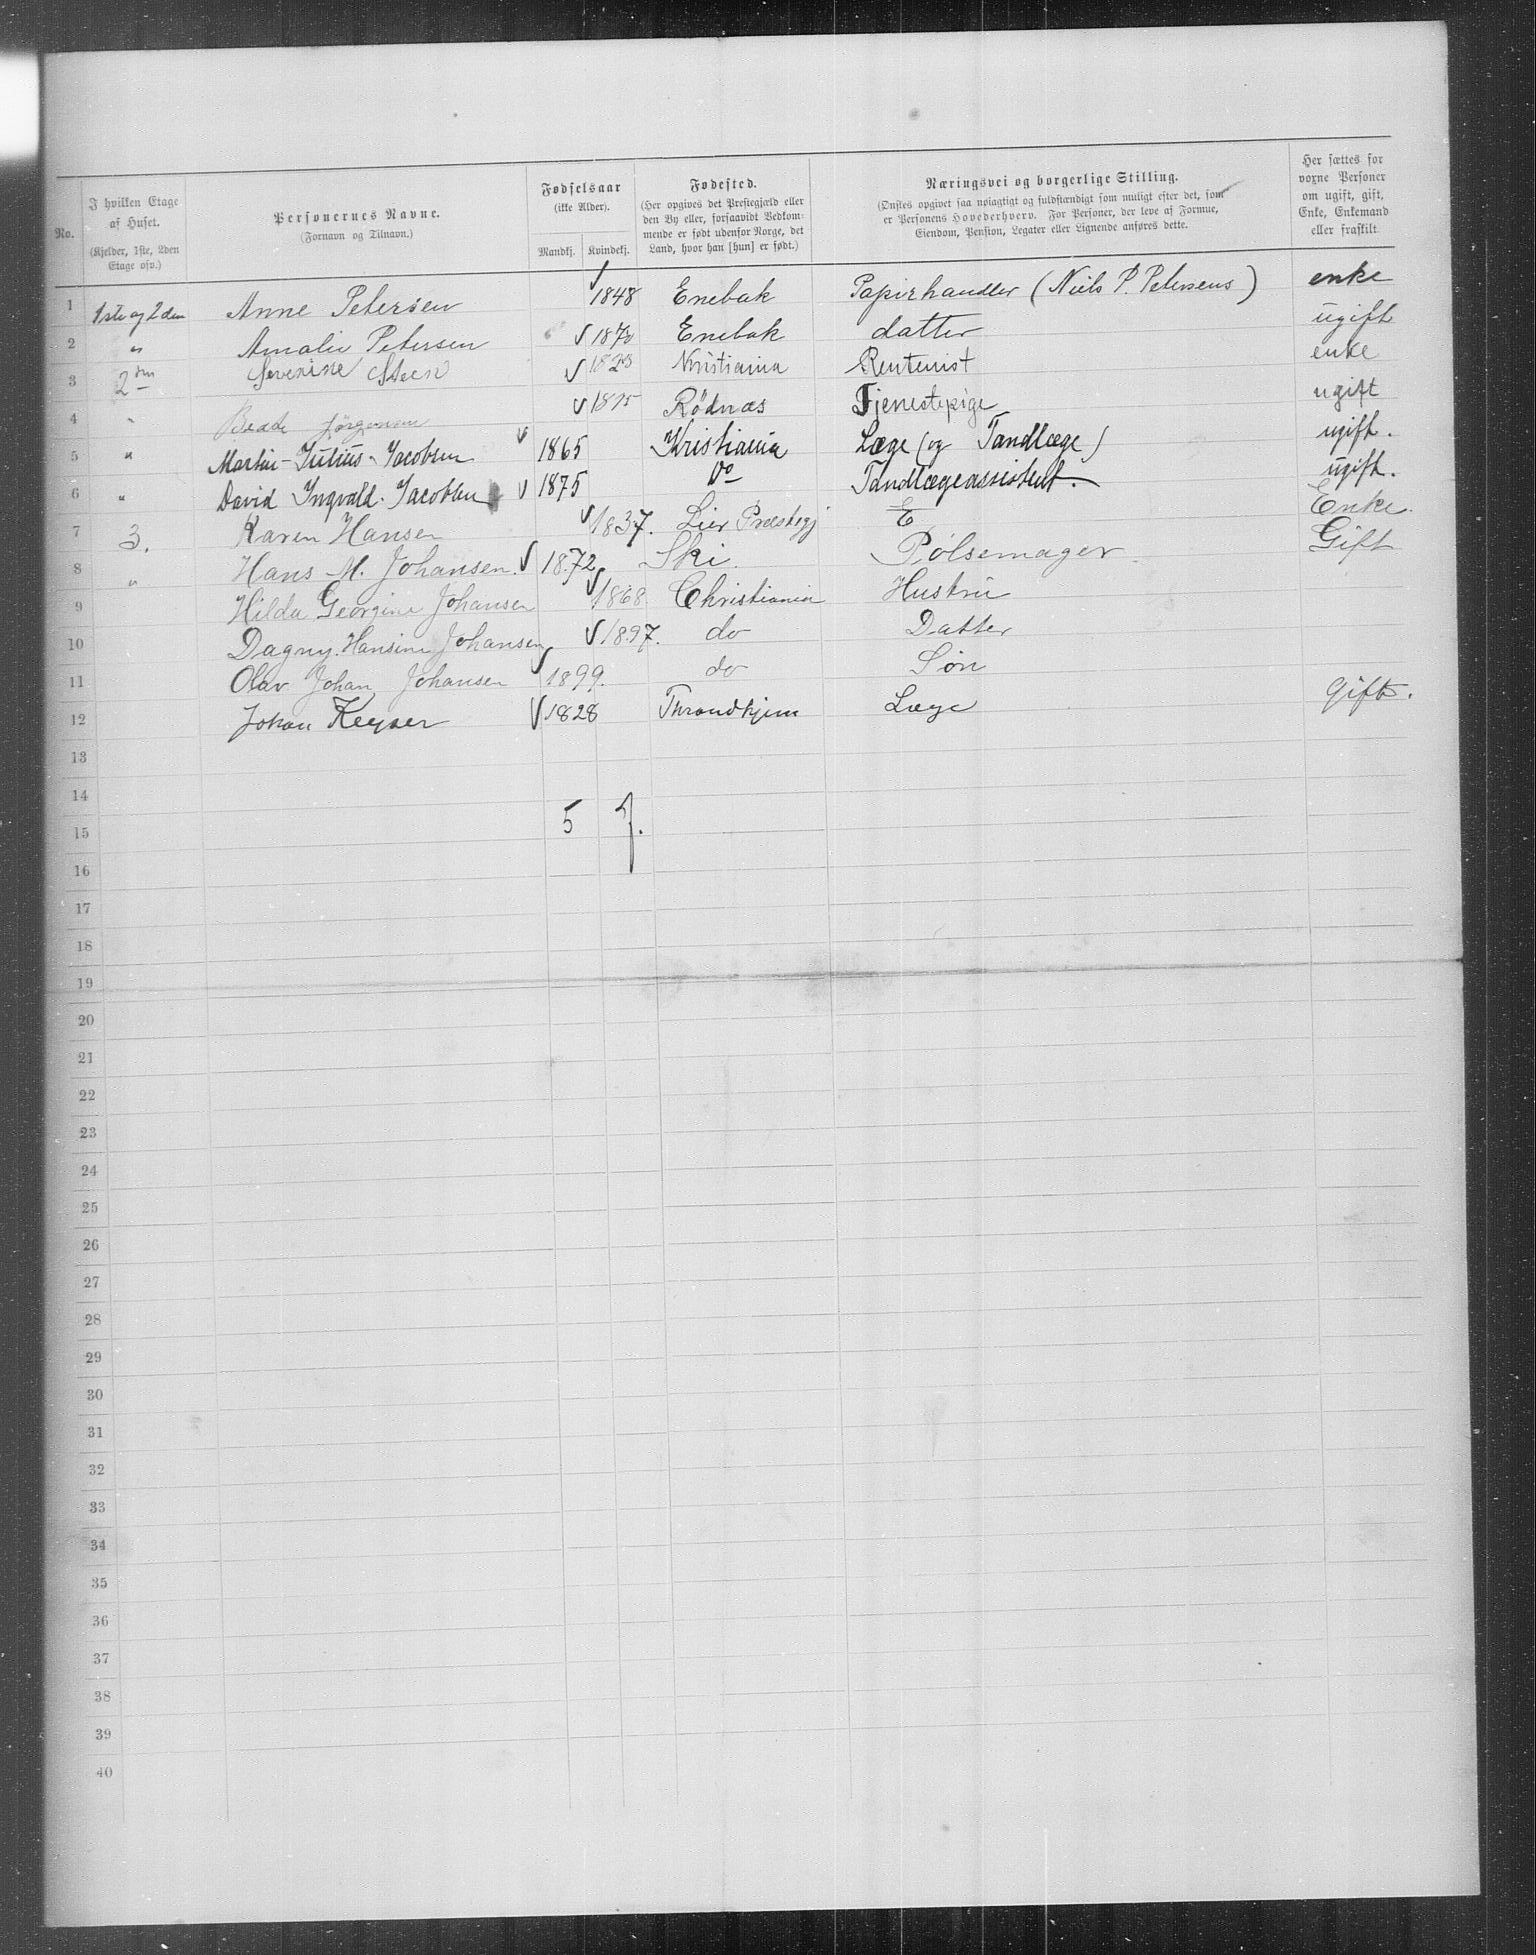 No. | I hvilken Etage af Huset. (Kjelder, 1ste, 2den Etage osv.) | Personernes Navne. (Fornavn og Tilnavn.) | Fødselsaar (ikke Alder). Mandkj. | Kvindekj. | Fødested. (Her opgives det Prestegjæld eller den By eller, forsaavidt Vedkommende er født udenfor Norge, det Land, hvor han [hun] er født.) | Næringsvei og borgerlige Stilling. (Ønskes opgivet saa nøiagtigt og fuldstændigt som muligt efter det, som er Personens Hovederhverv. For Personer, der leve af Formue, Eiendom, Pension, Legater eller Lignende anføres dette. | Her sættes for voxne Personer om ugift, gift, Enke, Enkemand eller fraskilt
1 1ste og 2den Anne Petersen 1848 Enebak Papirhandler (Niels P. Petersens) enke
2 " Amalie Petersen 1870 Enebak datter ugift
3 2den Severine Steen Kristiania Rentenist enke
4 " Beate Jørgensen 1875 Rødnæs Tjenestepige ugift
5 " Martin-Julius-Jacobsen 1865 Kristiania Læge (og Tandlæge) ugift.
6 " David Ingvald. Jacobsen 1875 Do Tandlægeassistent. ugift.
7 3. Karen Hansen 1837. Lier Præstegj E Enke.
8 " Hans M. Johansen. 1872. Ski. Pølsemager Gift
9 Hilda Georgine Johansen 1868. Christiania Hustru
10 Dagny. Hansine Johansen 1897. do Datter
11 Olav Johan Johansen 1899. do Søn
12 Johan Keyser 1828 Throndhjem Læge gift.
13
14
5 7.
15
16
17
18
19
20
21
22
23
24
25
26
27
28
29
30
31
32
33
34
35
36
37
38
39
40